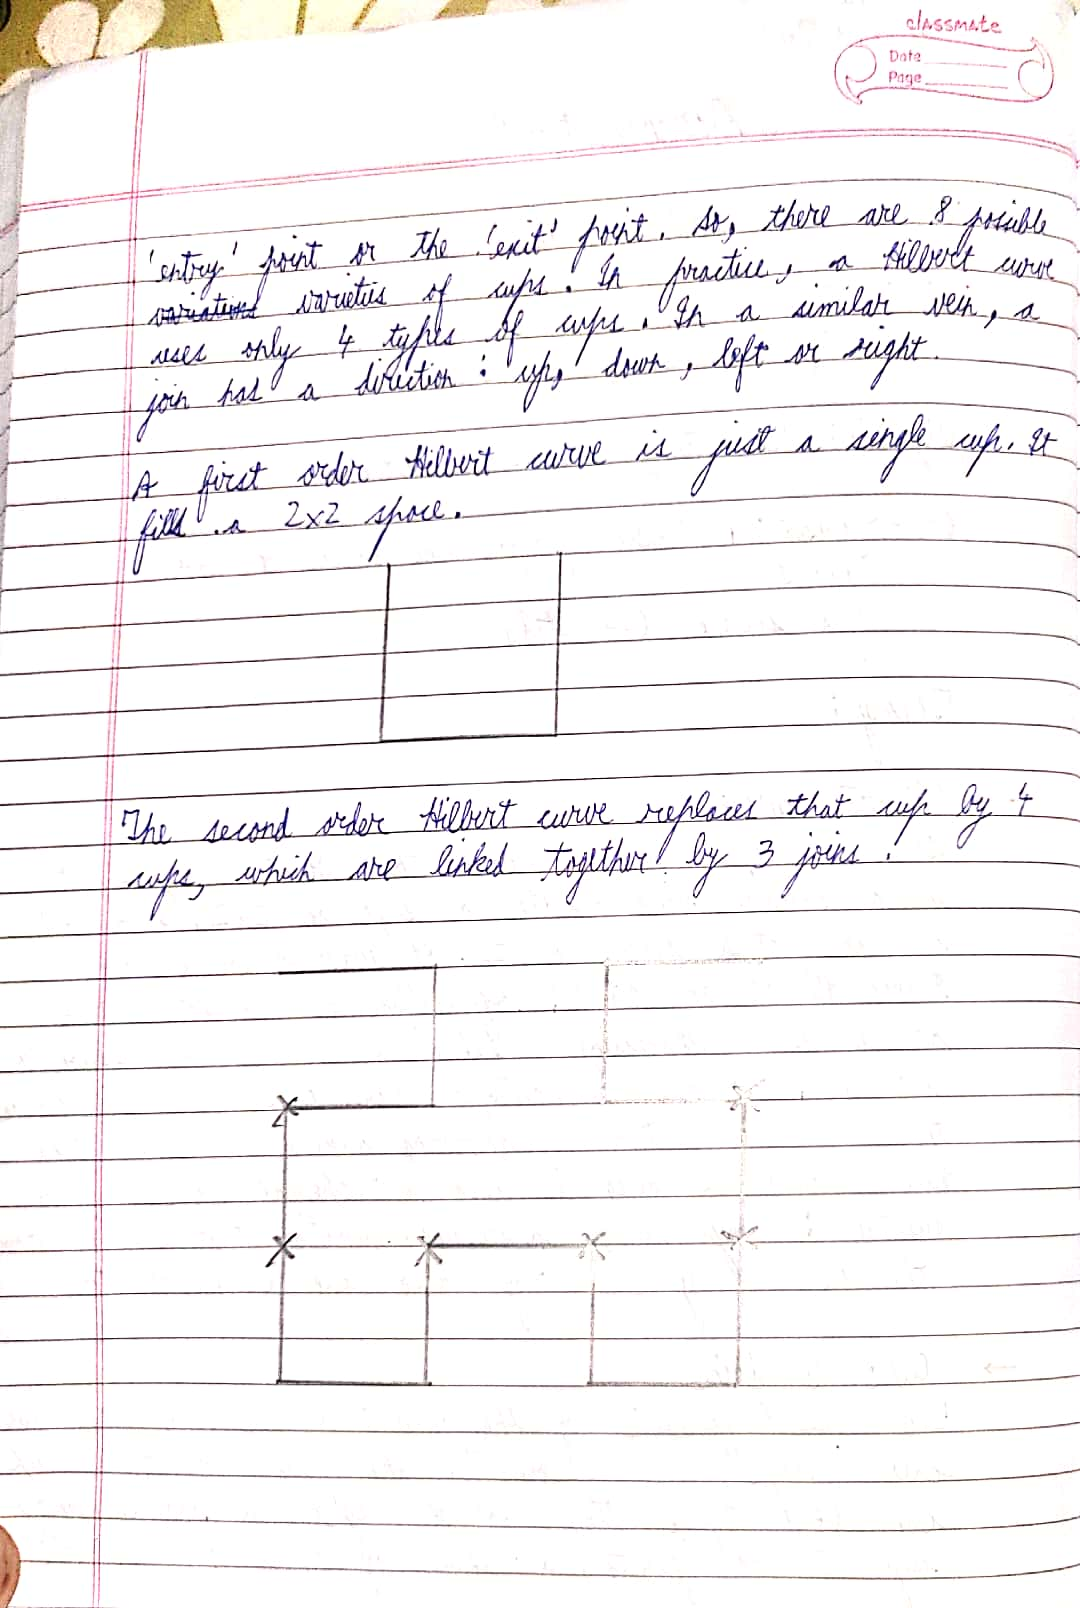 classmate
Date
Page
'entry' point or the 'exit' point. So, there are 8 possible
variations varieties of cups. In practice, a Hilbert curve
uses only 4 types of cups. In a similar vein, a
join has a direction : up, down, left or right.
A first order Hilbert curve is just a single cup. It
fills a 2x2 space.
The second order Hilbert curve replaces that cup by 4
cups, which are linked together by 3 joins.